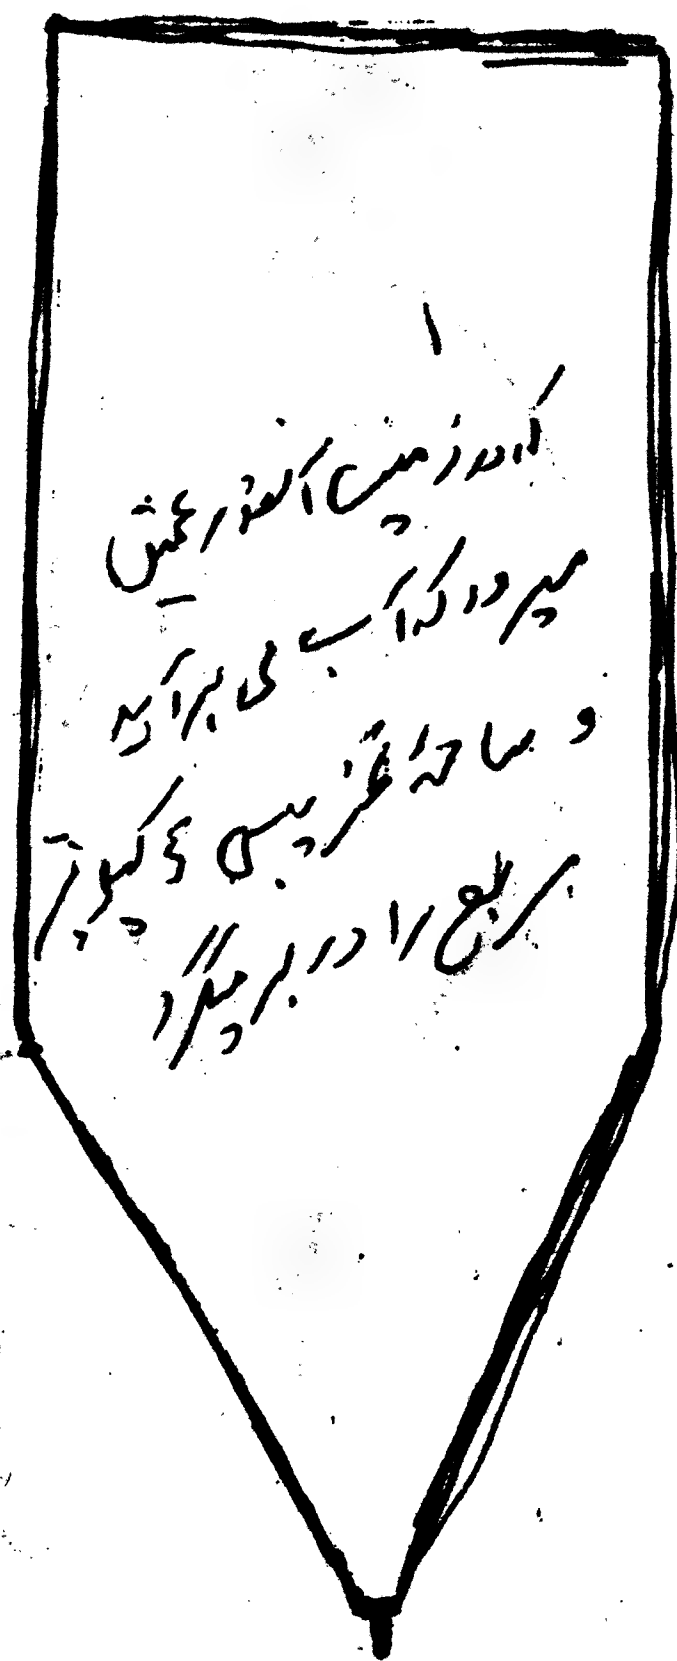 ۱
که در زمین آنقدر عمیق
میرود که آب می برآید
و ساحهٔ قریب ۶ کیلومتر
مربع را در بر میگیرد